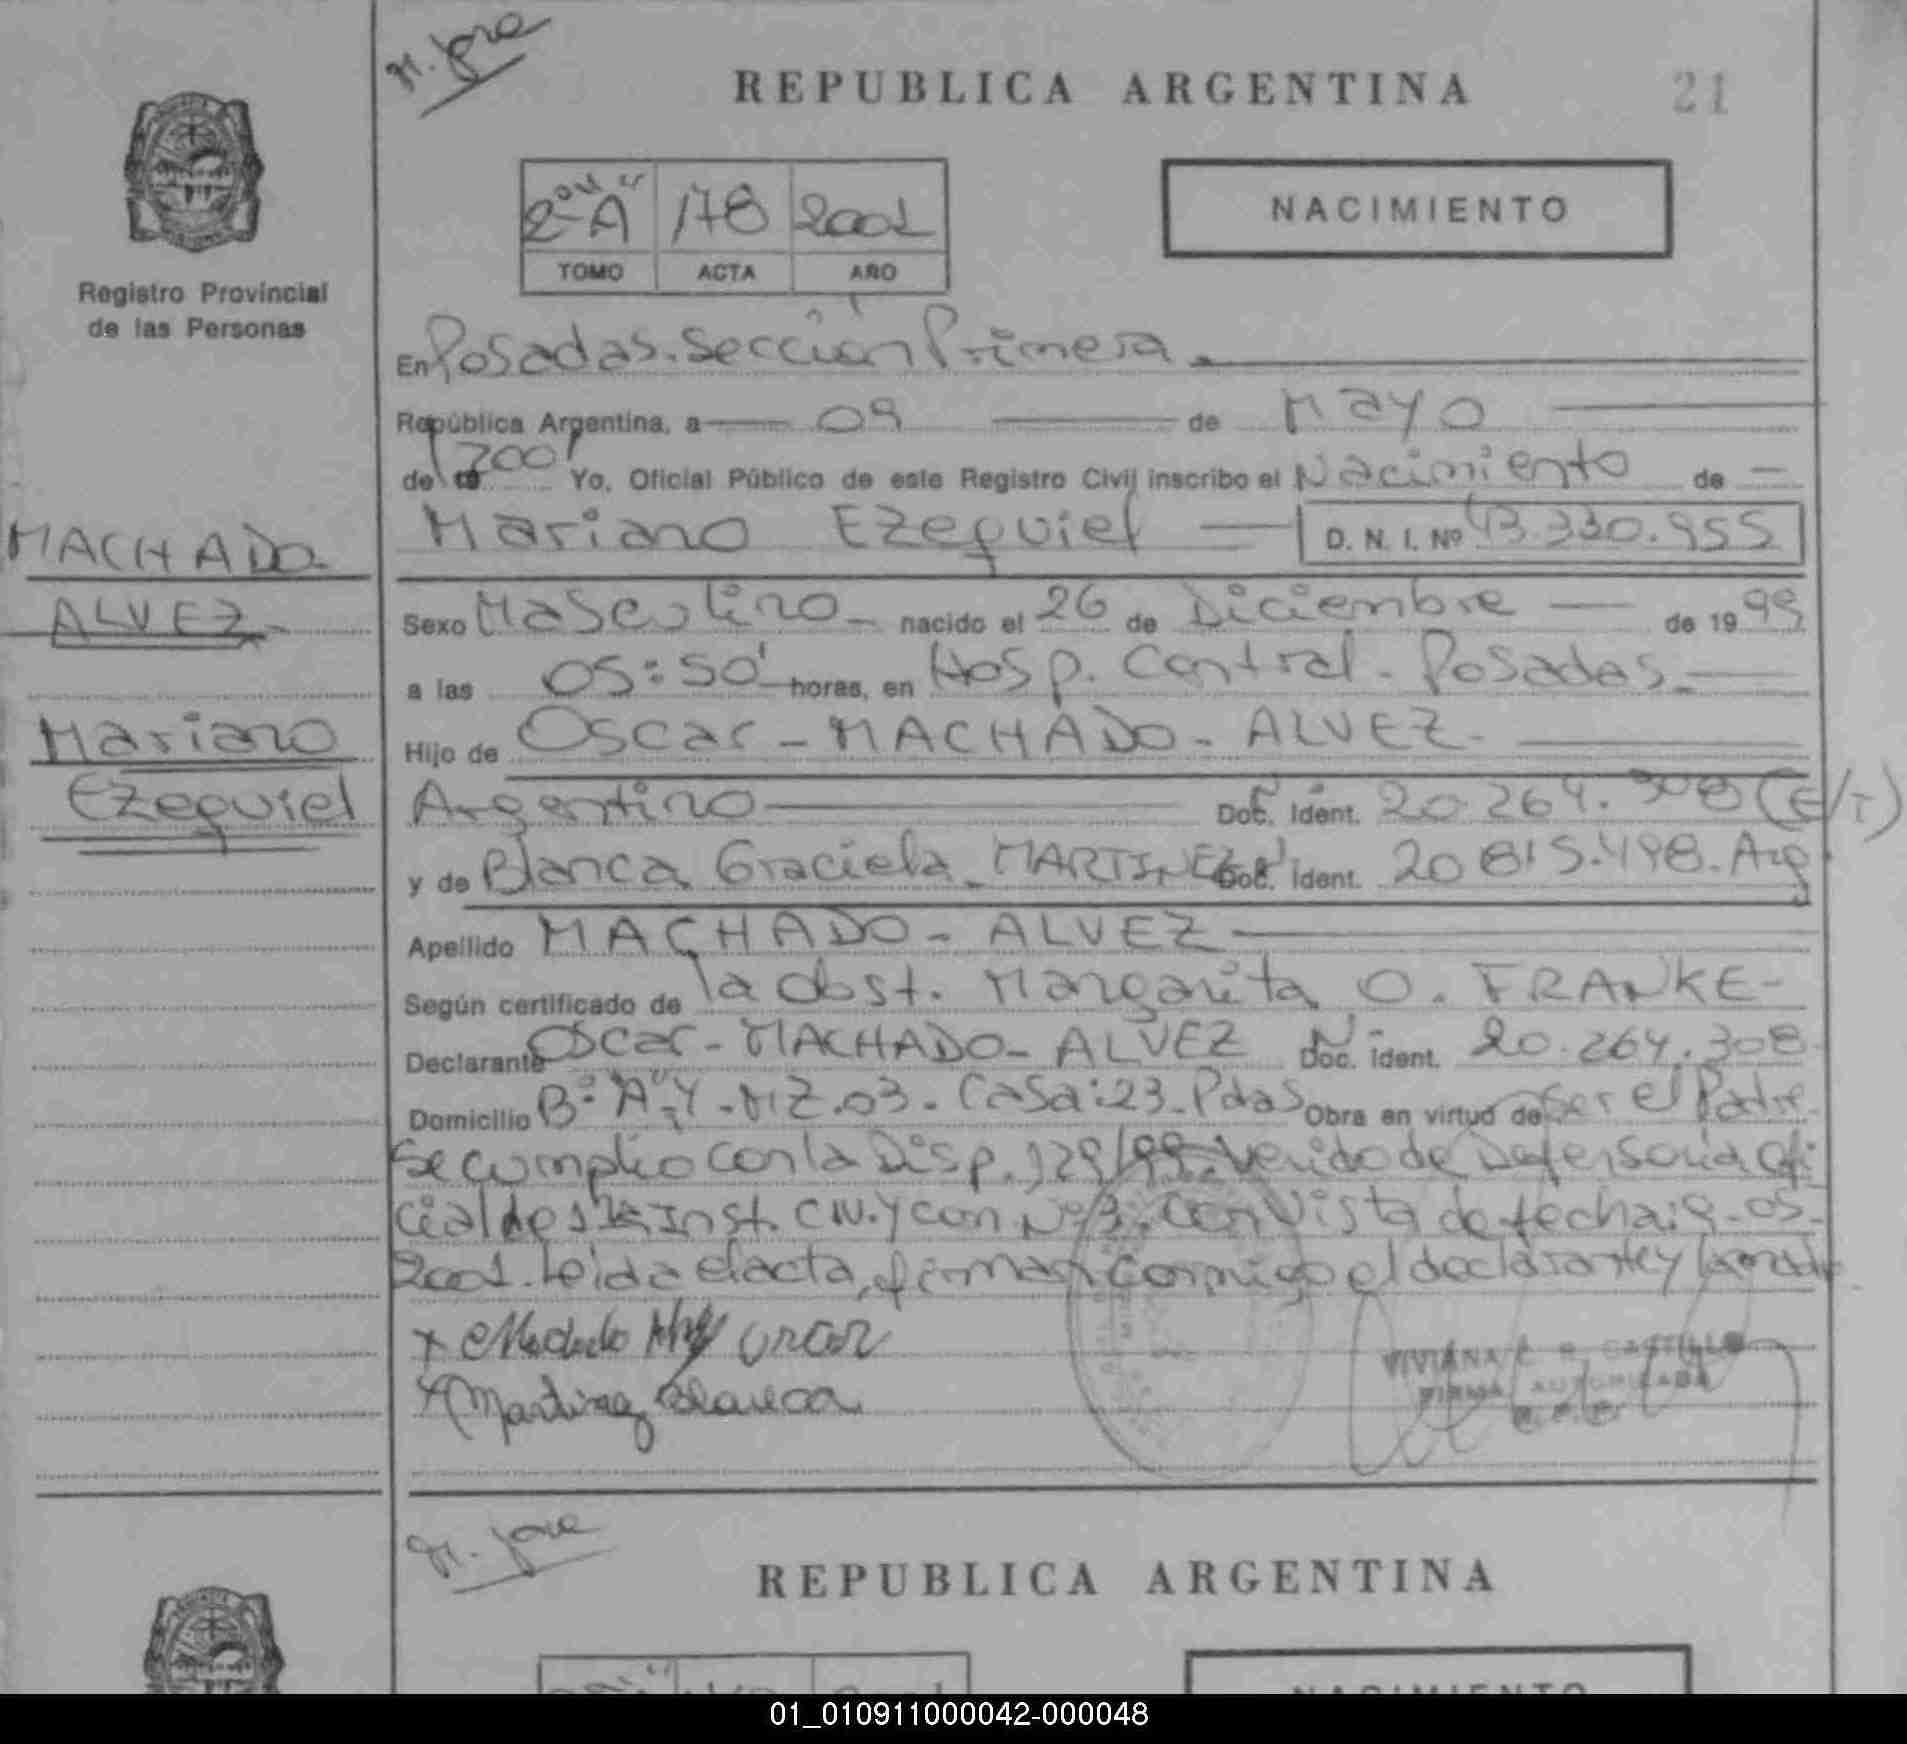 M. Jose
REPUBLICA ARGENTINA
21
2º "A" 178 2001
TOMO ACTA AÑO
NACIMIENTO
Registro Provincial
de las Personas
En Posadas. Sección Primera
República Argentina, a 09 de Mayo
de 19 2001 Yo, Oficial Público de este Registro Civil inscribo el Nacimiento de
Mariano Ezequiel D. N. I. Nº 43.330.955
MACHADO
ALVEZ
Mariano
Ezequiel
Sexo Masculino nacido el 26 de Diciembre de 1999
a las 05:50' horas, en Hosp. Central - Posadas
Hijo de Oscar - MACHADO - ALVEZ
Argentino Doc. Ident. 20.264.308 (E/T)
y de Blanca Graciela MARTINEZ Doc. Ident. 20 815.498. Arg
Apellido MACHADO - ALVEZ
Según certificado de la obst. Margarita O. FRANKE
Declarante Oscar - MACHADO - ALVEZ Doc. Ident. 20.264.308
Domicilio Bº "A-4" - MZ.03 - Casa:23 - Pdas Obra en virtud de ser el Padre
Se cumplio con la Disp. 129/99. Venido de Defensoria Ofi
cial de Inst. Civ. y Con. Nº 3. con Vista de fecha: 9-05-
2001. Leida el acta, firman conmigo el declarante y la madre
x Machado Oscar
x Martinez Blanca
VIVIANA E. R. CASTILLO
FIRMA AUTORIZADA
M. Jose
REPUBLICA ARGENTINA
NACIMIENTO
01_010911000042-000048